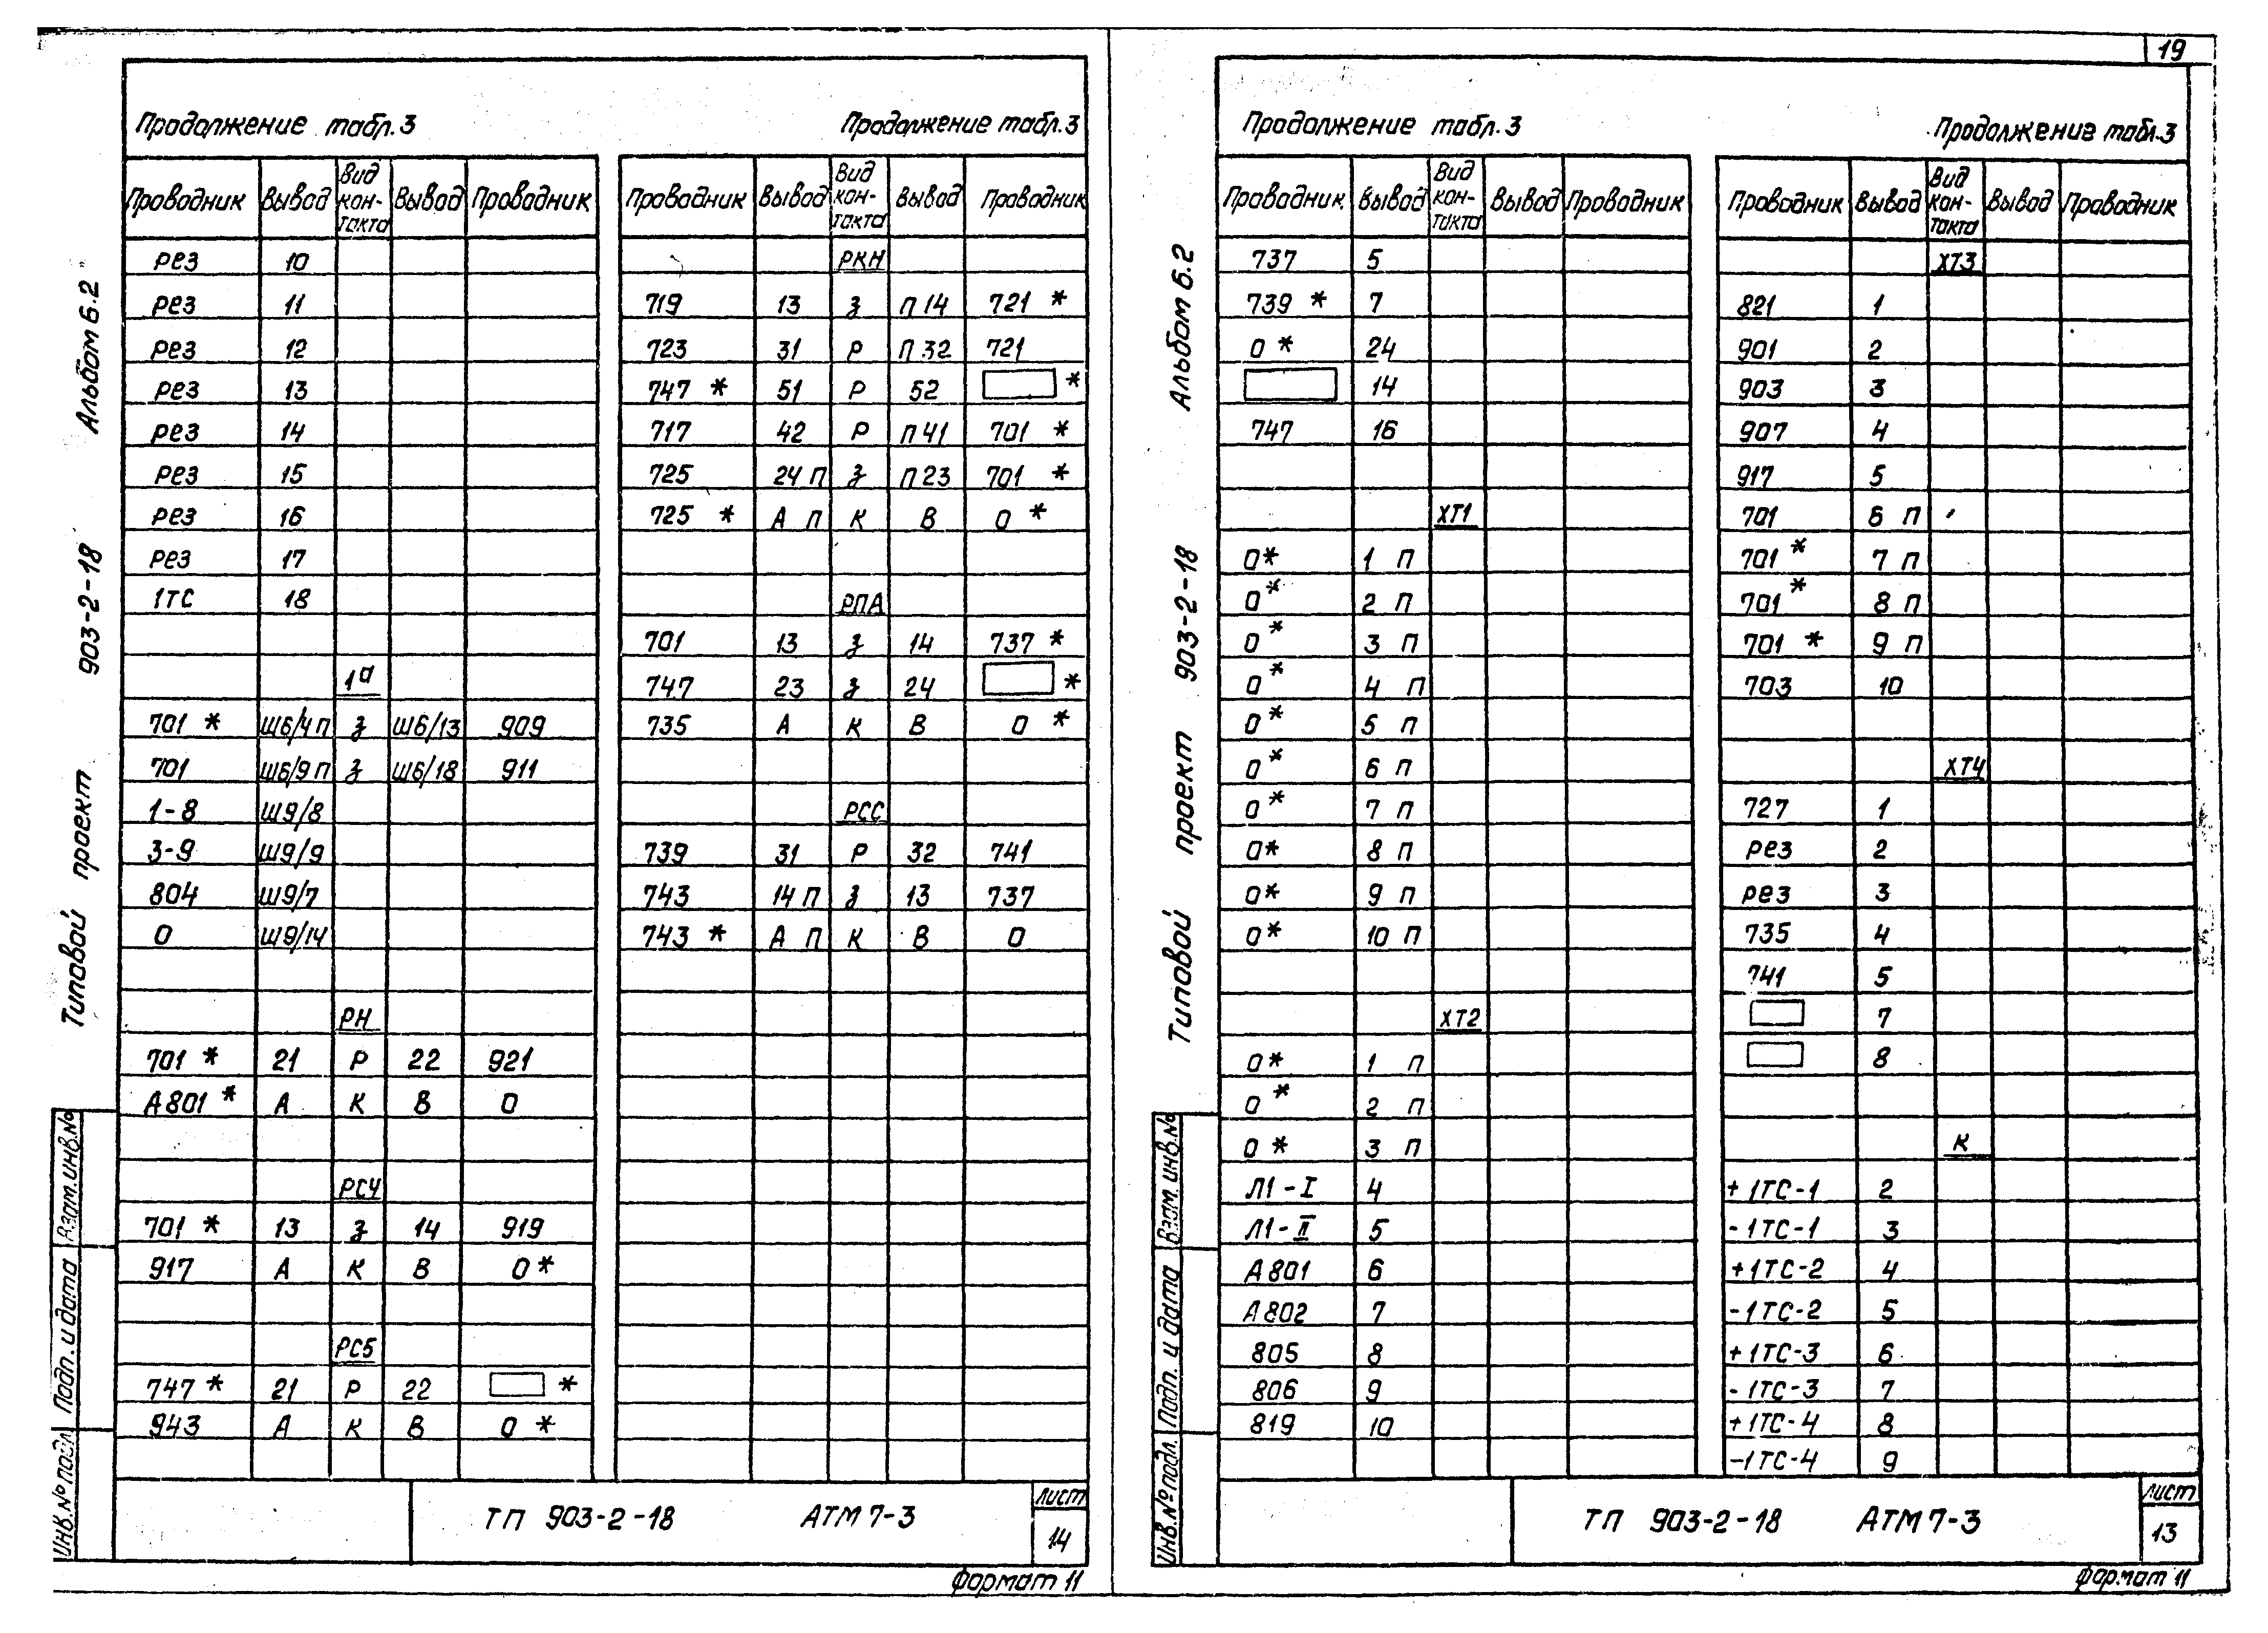 19
Продолжение табл.3
Проводник Вывод Вид контакта Вывод Проводник
рез 10
рез 11
рез 12
рез 13
рез 14
рез 15
рез 16
рез 17
1ТС 18
1а
701 * Ш6/4 П З Ш6/13 909
701 Ш6/9 П З Ш6/18 911
1-8 Ш9/8
3-9 Ш9/9
804 Ш9/7
0 Ш9/14
РН
701 * 21 Р 22 921
А801 * А К В 0
РС4
701 * 13 З 14 919
917 А К В 0 *
РС5
747 * 21 Р 22 *
943 А К В 0 *
Продолжение табл.3
Проводник Вывод Вид контакта Вывод Проводник
РКН
719 13 З П 14 721 *
723 31 Р П 32 721
747 * 51 Р 52 *
717 42 Р П 41 701 *
725 24 П З П 23 701 *
725 * А П К В 0 *
РПА
701 13 З 14 737 *
747 23 З 24 *
735 А К В 0 *
РСС
739 31 Р 32 741
743 14 П З 13 737
743 * А П К В 0
Альбом 6.2
903-2-18
Типовой проект
Взам.инв.№
Подп. и дата
Инв.№ подл
ТП 903-2-18 АТМ 7-3
Лист
14
Формат 11
Продолжение табл.3
Проводник Вывод Вид кон-такта Вывод Проводник
737 5
739 * 7
0 * 24
14
747 16
ХТ1
0* 1 П
0* 2 П
0* 3 П
0* 4 П
0* 5 П
0* 6 П
0* 7 П
0* 8 П
0* 9 П
0* 10 П
ХТ2
0* 1 П
0* 2 П
0* 3 П
Л1-I 4
Л1-II 5
А801 6
А802 7
805 8
806 9
819 10
Продолжение табл.3
Проводник Вывод Вид кон-такта Вывод Проводник
ХТ3
821 1
901 2
903 3
907 4
917 5
701 6 П
701 * 7 П
701 * 8 П
701 * 9 П
703 10
ХТ4
727 1
рез 2
рез 3
735 4
741 5
7
8
К
+1ТС-1 2
-1ТС-1 3
+1ТС-2 4
-1ТС-2 5
+1ТС-3 6
-1ТС-3 7
+1ТС-4 8
-1ТС-4 9
Альбом 6.2
903-2-18
Типовой проект
Взам.инв.№
Подп. и дата
Инв.№ подл.
ТП 903-2-18 АТМ 7-3
Лист
13
Формат 11